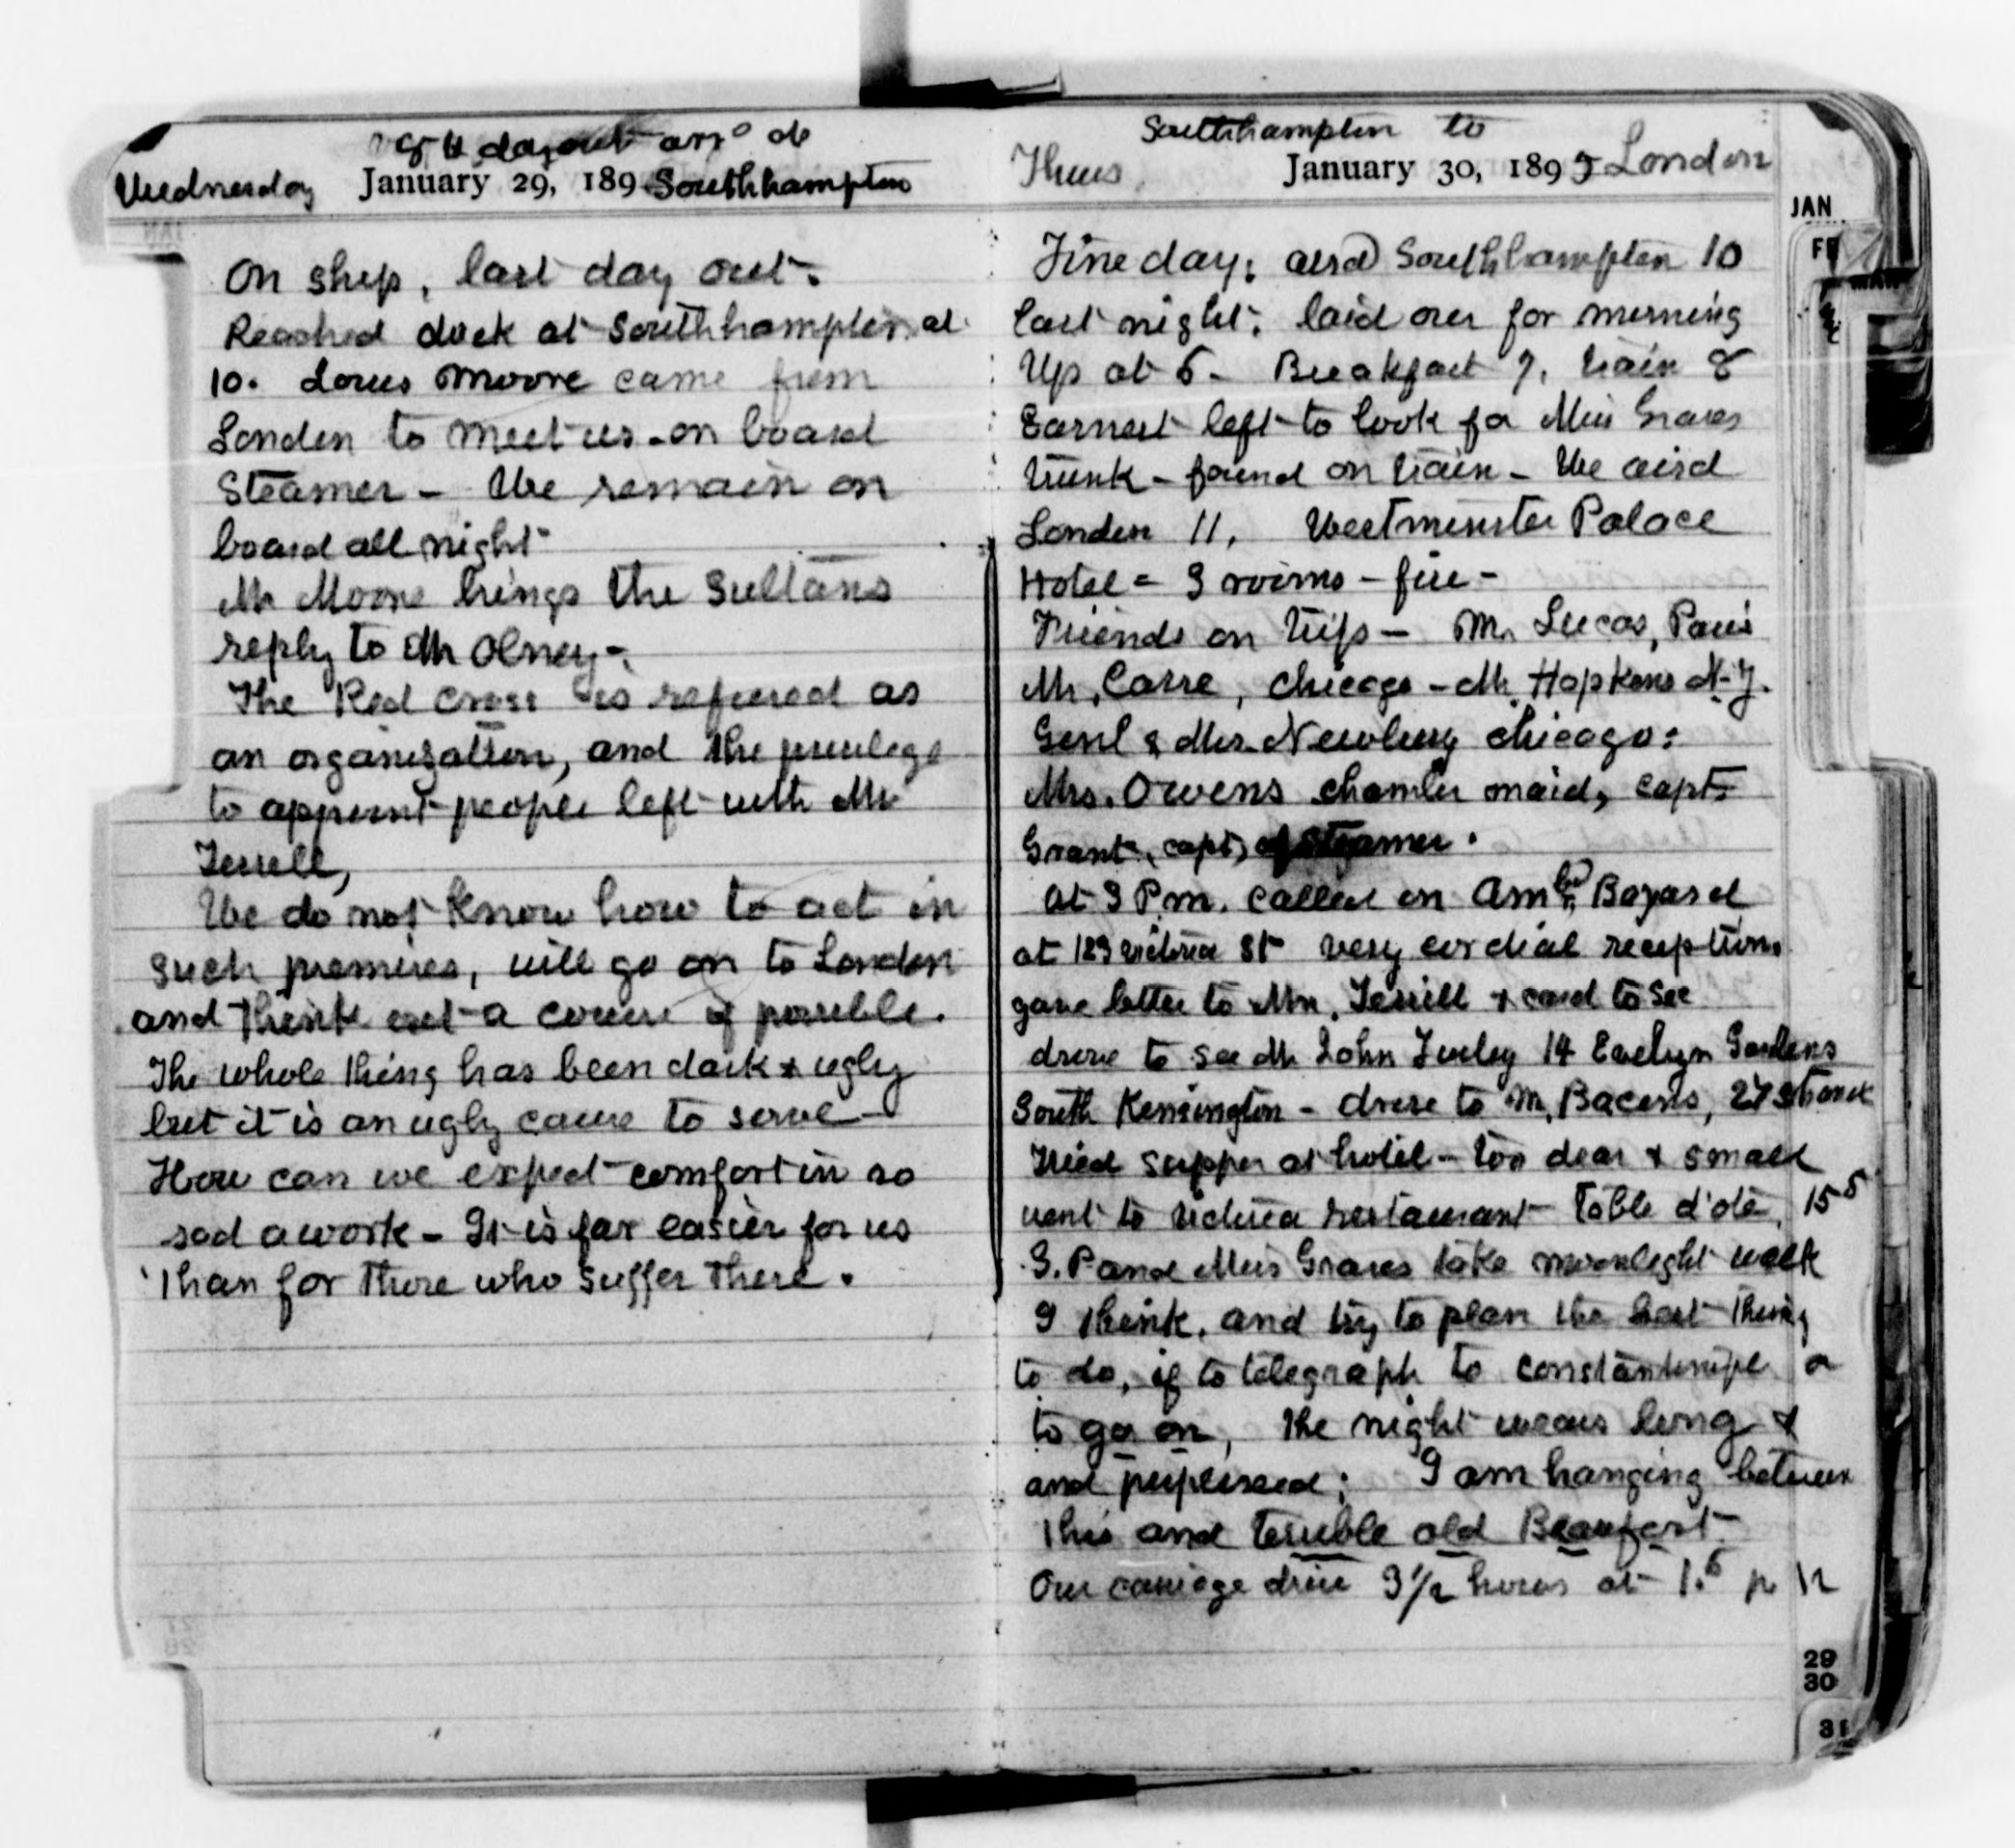 8th day out arr^d at
Wednesday January 29, 189 Southhampton
On ship, last day out.
Reached dock at Southhampton at
10. Louis Moore came from
London to meet us - on board
Steamer - We remain on
board all night
Mr Moore brings the Sultans
reply to Mr Olney -
The Red Cross is refused as
an organization, and the privilege
to appoint people left with Mr
Terrell,
We do not know how to act in
such premises, will go on to London
and think out a course if possible.
The whole thing has been dark & ugly
but it is an ugly cause to serve -
How can we expect comfort in so
sad a work - It is far easier for us
than for those who suffer there.
Southhampton to
Thurs. January 30, 189 London
Fine day; arrd Southhampton 10
last night; laid over for morning
Up at 5 - Breakfast 7, train 8
Earnest left to look for Miss Graves
trunk - found on train - We arrd
London 11, Westminster Palace
Hotel = 3 rooms - fire -
Friends on trip - Mr Lucas, Paris
Mr. Carre, Chicago - Mr. Hopkins N.Y.
Genl & Mrs. Newbury Chicago:
Mrs. Owens chamber maid, Capt.
Grant, capt, of Steamer.
At 3 P.m. called on Amb. Bayard
at 123 Victoria St very cordial reception.
gave letter to Mr. Terrill & card to see
drove to see Mr John Turley 14 Evelyn Gardens
South Kensington - drove to Mr. Bacons, 27 Strand
Tried supper at hotel - too dear & small
went to Victoria restaurant - table d'ote, 15^5
G. P and Miss Graves take moonlight walk
I think, and try to plan the best thing
to do, if to telegraph to Constantinople or
to go on, The night wears long &
and perplexed; I am hanging between
this and terrible old Beaufort
Our carriage drive 3 1/2 hours at 1.^5 p h
JAN
29
30
31